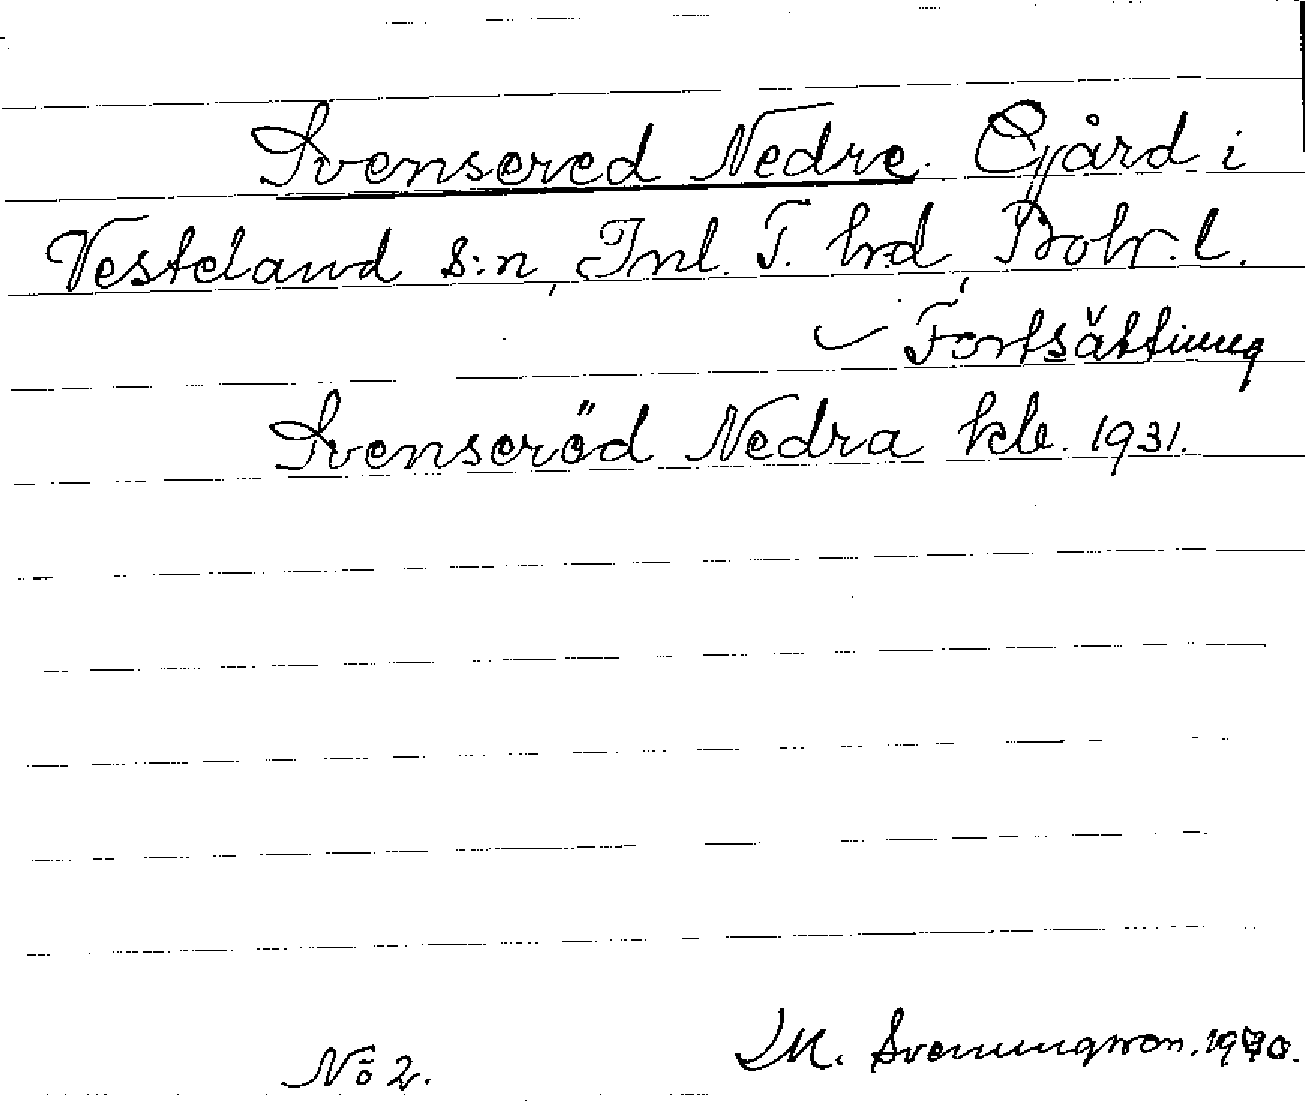 Svensered Nedre. Gjård i
Vesteland s:n, Inl. T. hrd, Boh. l.
Fortsättning
Svenseröd Nedra kb. 1931.
No 2. M. Svenungsson. 1970.